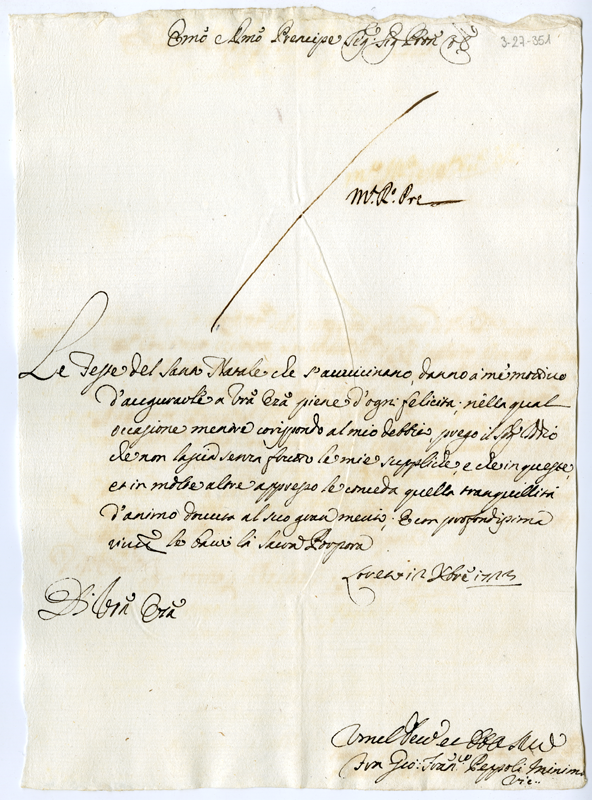 Emo e Rmo Prencipe Sigr Sig Pron
3-27-351
Mt. Ro. Pre
Le Feste del Santo Natale che s'auuicinano, danno à me motiuo
d'augurarle a Vra Eza piene d'ogni felicità, nella qual
occasione mentre corrispondo al mio debito, prego il Sigr Iddio
che non lasci senza frutto le mie suppliche, e che in queste,
et in molte altre appresso le conceda quella tranquillità
d'animo douuta al suo gran merito, E con profondissima
le bacio la Sacra Porpora
12 Xbre 1723
Di Vra Eza
Umil et
Fra Gio: Franco Peppoli Minimo
Vic..